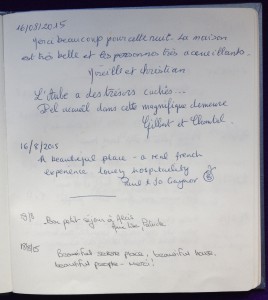 16/08/2015
Merci beaucoup pour cette nuit. La maison
est très belle et les personnes très accueillantes.
Mireille et Christian
L'Aube a des trésors cachés...
Bel accueil dans cette magnifique demeure
Gilbert et Chantal
16/8/2015
A beautiful place - a real french
experience lovely hospitality
Paul & Jo Gaynor
Bon petit séjour
beautiful people - merci!